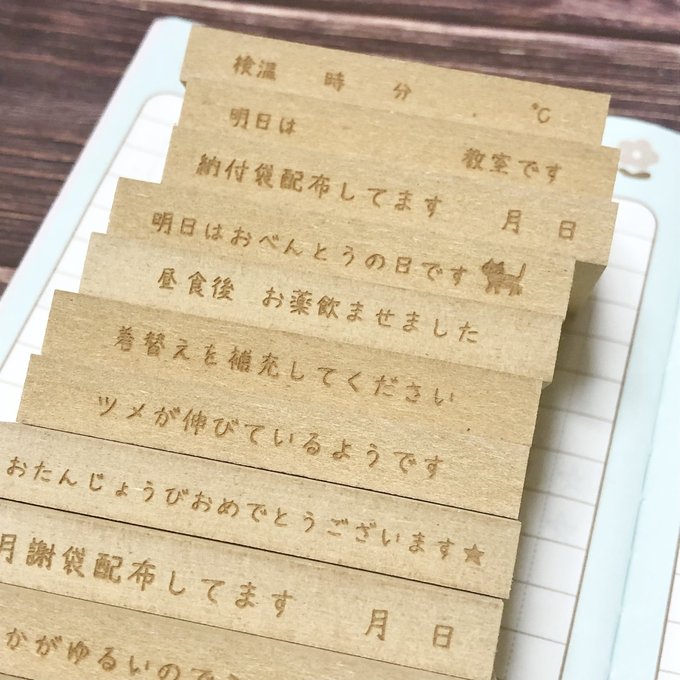 検温 時 分 . ℃
明日は 教室です
納付袋配布してます 月 日
明日はおべんとうの日です
昼食後 お薬飲ませました
着替えを補充してください
ツメが伸びているようです
おたんじょうびおめでとうございます★
月謝袋配布してます 月 日
かがゆるいので